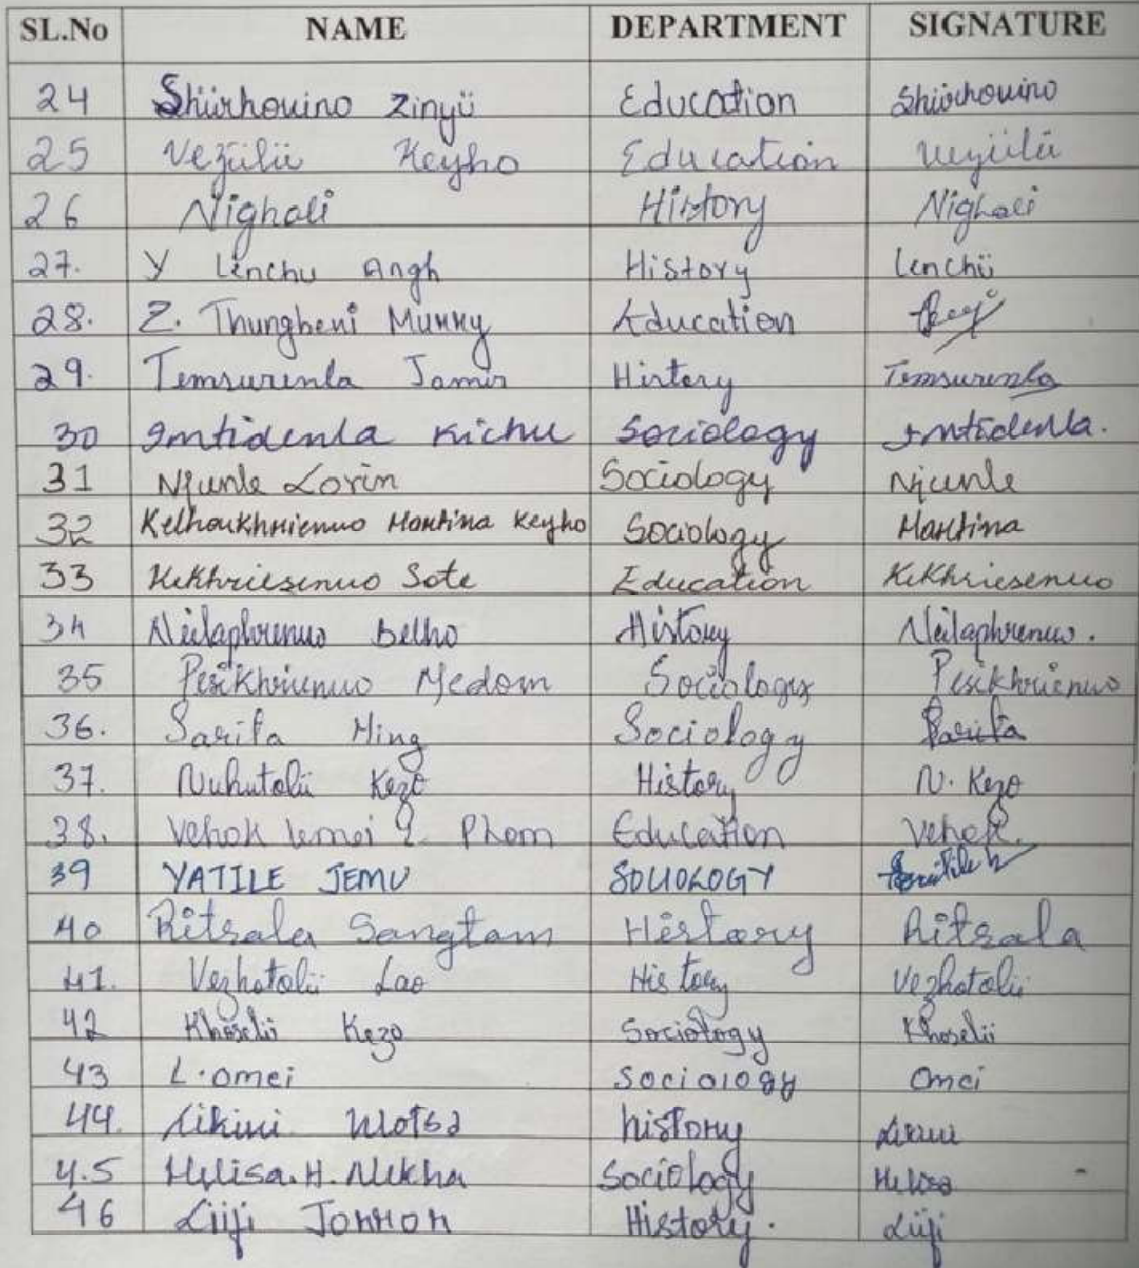 SL.No NAME DEPARTMENT SIGNATURE
24 Shürhouino Zinyü Education Shürhouino
25 Vezülü Keyho Education Vezülü
26 Nighali History Nighali
27. Y Lenchu Angh History Lenchü
28. Z. Thungbeni Murry Education
29. Temsurenla Jamir History Temsurenla
30 Imtidenla Kichu Sociology Imtidenla.
31 Njunle Lorin Sociology Njunle
32 Kelhoukhrienuo Martina Keyho Sociology Martina
33 Kekhriesenuo Sote Education Kekhriesenuo
34 Neilaphrenuo Belho History Neilaphrenuo.
35 Pesikhrienuo Medom Sociology Pesikhrienuo
36. Sarita Hing Sociology Sarita
37. Nuhutolü Kezo History N. Kezo
38. Vehok Phom Education Vehok.
39 YATILE JEMU SOCIOLOGY
40 Ritsala Sangtam History Ritsala
41. Vezhotolü Lao History Vezhotolü
42 Khoselü Kezo Sociology Khoselü
43 L. omei Sociology Omei
44. Likini Wotsa history
4.5 Helisa. H. Nukha Sociology Helisa
46 Lüji Jonron History. Lüji